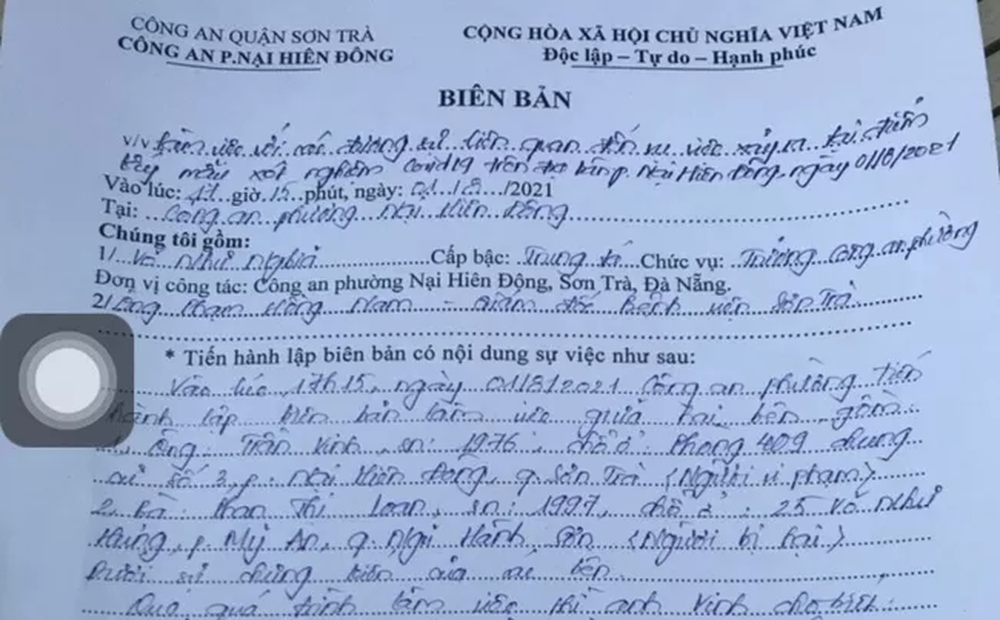 CÔNG AN QUẬN SƠN TRÀ
CÔNG AN P.NẠI HIÊN ĐÔNG
CỘNG HÒA XÃ HỘI CHỦ NGHĨA VIỆT NAM
Độc lập – Tự do – Hạnh phúc
BIÊN BẢN
v/v làm việc với các đương sự liên quan đến vụ việc xảy ra tại điểm
lấy mẫu xét nghiệm covid19 trên địa bàn p. Nại Hiên Đông ngày 01/8/2021
Vào lúc: 17 giờ 15 phút, ngày: 01/8/2021
Tại: Công an phường Nại Hiên Đông
Chúng tôi gồm:
1/ Võ Như Nghĩa Cấp bậc: Trung tá Chức vụ: Trưởng Công an phường
Đơn vị công tác: Công an phường Nại Hiên Động, Sơn Trà, Đà Nẵng.
2/ Ông Phạm Hồng Nam - Giám đốc Bệnh viện Sơn Trà
* Tiến hành lập biên bản có nội dung sự việc như sau:
Vào lúc 17h15, ngày 01/8/2021 Công an phường tiến
hành lập biên bản làm việc giữa hai bên gồm:
1. Ông: Trần Vinh, sn: 1976, chỗ ở: Phòng 409 chung
cư số 3, p. Nại Hiên Đông, q. Sơn Trà (Người vi phạm)
2. Bà: Phan Thị Loan, sn: 1997, chỗ ở: 25 Võ Như
Hưng, p. Mỹ An, q. Ngũ Hành Sơn (Người bị hại)
Dưới sự chứng kiến của các bên.
Qua quá trình làm việc thì anh Vinh cho biết: